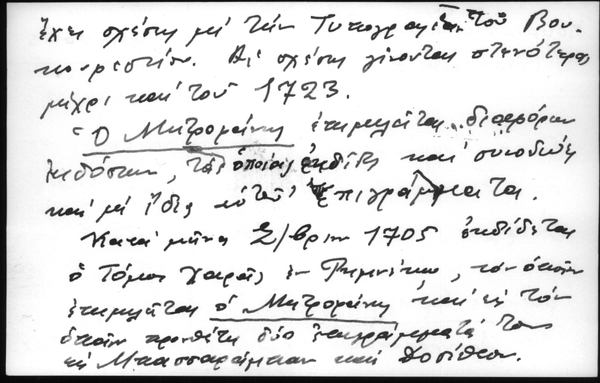 ἔχει σχέση μέ τήν Τυπογραφίαν τοῦ Βου-
κουρεστίου. Αἱ σχέσεις γίνονται στενότεραι
μέχρι καί τοῦ 1723.
Ὁ Μητροφάνης ἐπιμελεῖται διαφόρων
ἐκδόσεων, τάς ὁποίας ἐκδίδει καί συνοδεύει
καί μέ ἴδια αὐτοῦ ἐπιγράμματα.
Κατά μῆνα Σ/βριον 1705 ἐκδίδεται
ὁ Τόμος Χαρᾶς ἐν Ριμνίκῳ, τόν ὁποῖον
ἐπιμελεῖται ὁ Μητροφάνης καί εἰς τόν
ὁποῖον προσθέτει δύο ἐπιγράμματά του
εἰς Μπασσαράμπαν καί Δοσίθεον.